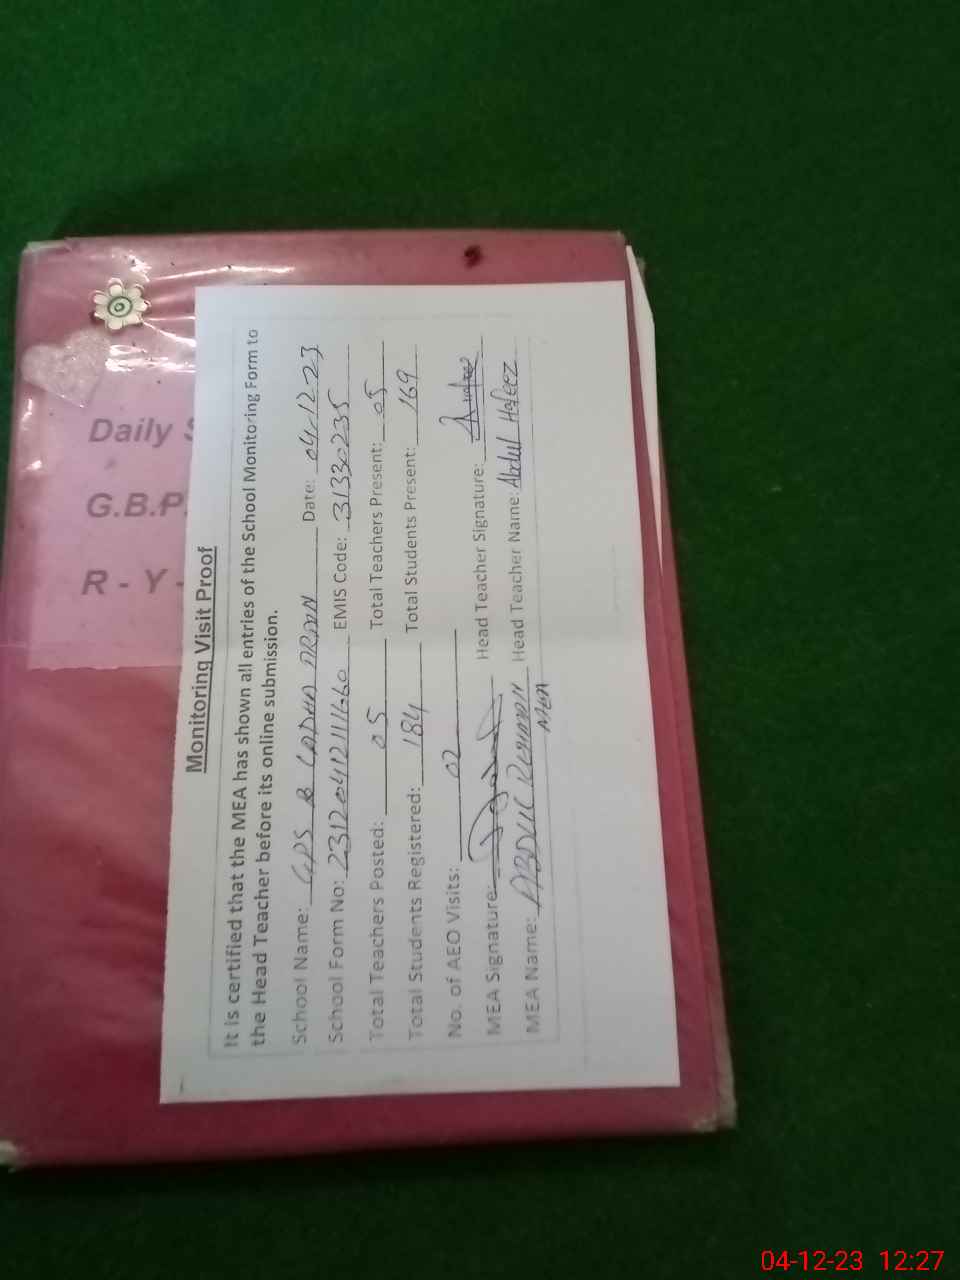 Daily
G.B.P.
R - Y -
Monitoring Visit Proof
It is certified that the MEA has shown all entries of the School Monitoring Form to
the Head Teacher before its online submission.
School Name: GPS B Date: 04-12-23
School Form No: EMIS Code: 31330235
Total Teachers Posted: 05 Total Teachers Present: 05
Total Students Registered: 184 Total Students Present: 169
No. of AEO Visits: 02
MEA Signature: Head Teacher Signature:
MEA Name: ABDUL REHMAN Head Teacher Name: Abdul Hafeez
MEA
04-12-23 12:27